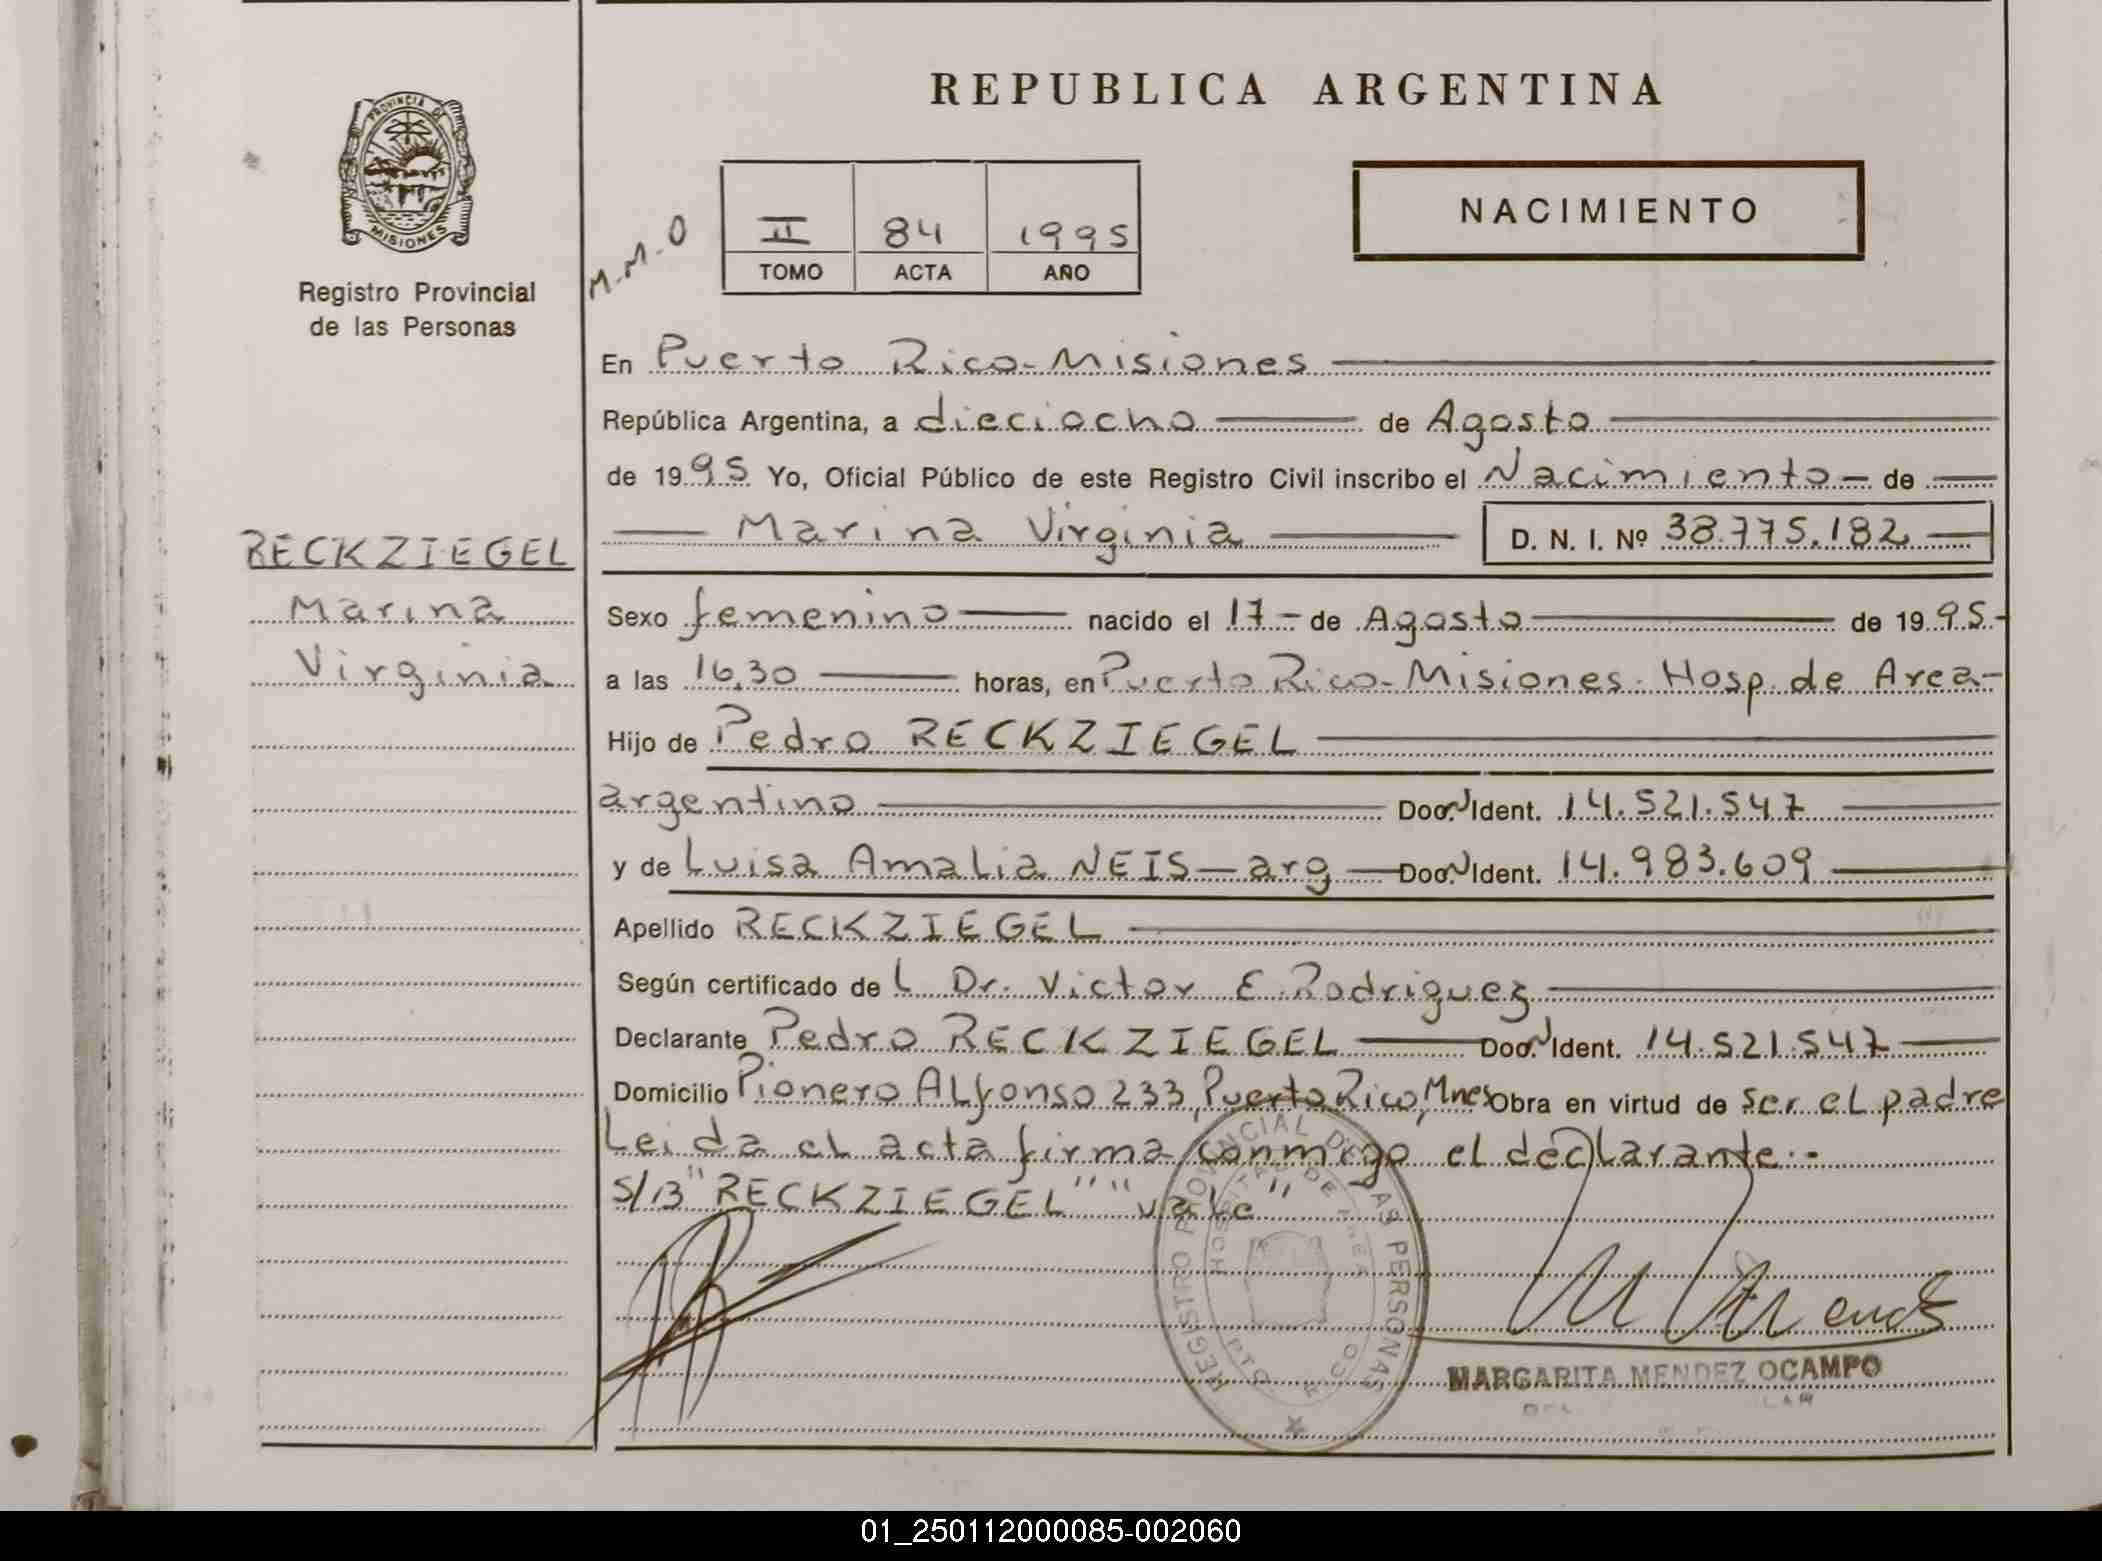 REPUBLICA ARGENTINA
PROVINCIA DE
MISIONES
Registro Provincial
de las Personas
M.M.O
II 84 1995
TOMO ACTA AÑO
NACIMIENTO
En Puerto Rico-Misiones
República Argentina, a dieciocho de Agosto
de 1995 Yo, Oficial Público de este Registro Civil inscribo el Nacimiento - de
Marina Virginia D. N. I. Nº 38.775.182
RECKZIEGEL
Marina
Virginia
Sexo femenino nacido el 17 - de Agosto de 1995-
a las 16,30 horas, en Puerto Rico-Misiones. Hosp. de Area-
Hijo de Pedro RECKZIEGEL
argentino Doc. Ident. 14.521.547
y de Luisa Amalia NEIS - arg - Doc. Ident. 14.983.609
Apellido RECKZIEGEL
Según certificado de L Dr. Victor E. Rodriguez
Declarante Pedro RECKZIEGEL Doc. Ident. 14.521.547
Domicilio Pionero Alfonso 233, Puerto Rico, Mnes Obra en virtud de ser el padre
Leida el acta firma conmigo el declarante.-
S/B "RECKZIEGEL" "vale"
REGISTRO PROVINCIAL DE LAS PERSONAS
HOSPITAL DE AREA
PTO. RICO
MARGARITA MENDEZ OCAMPO
01_250112000085-002060